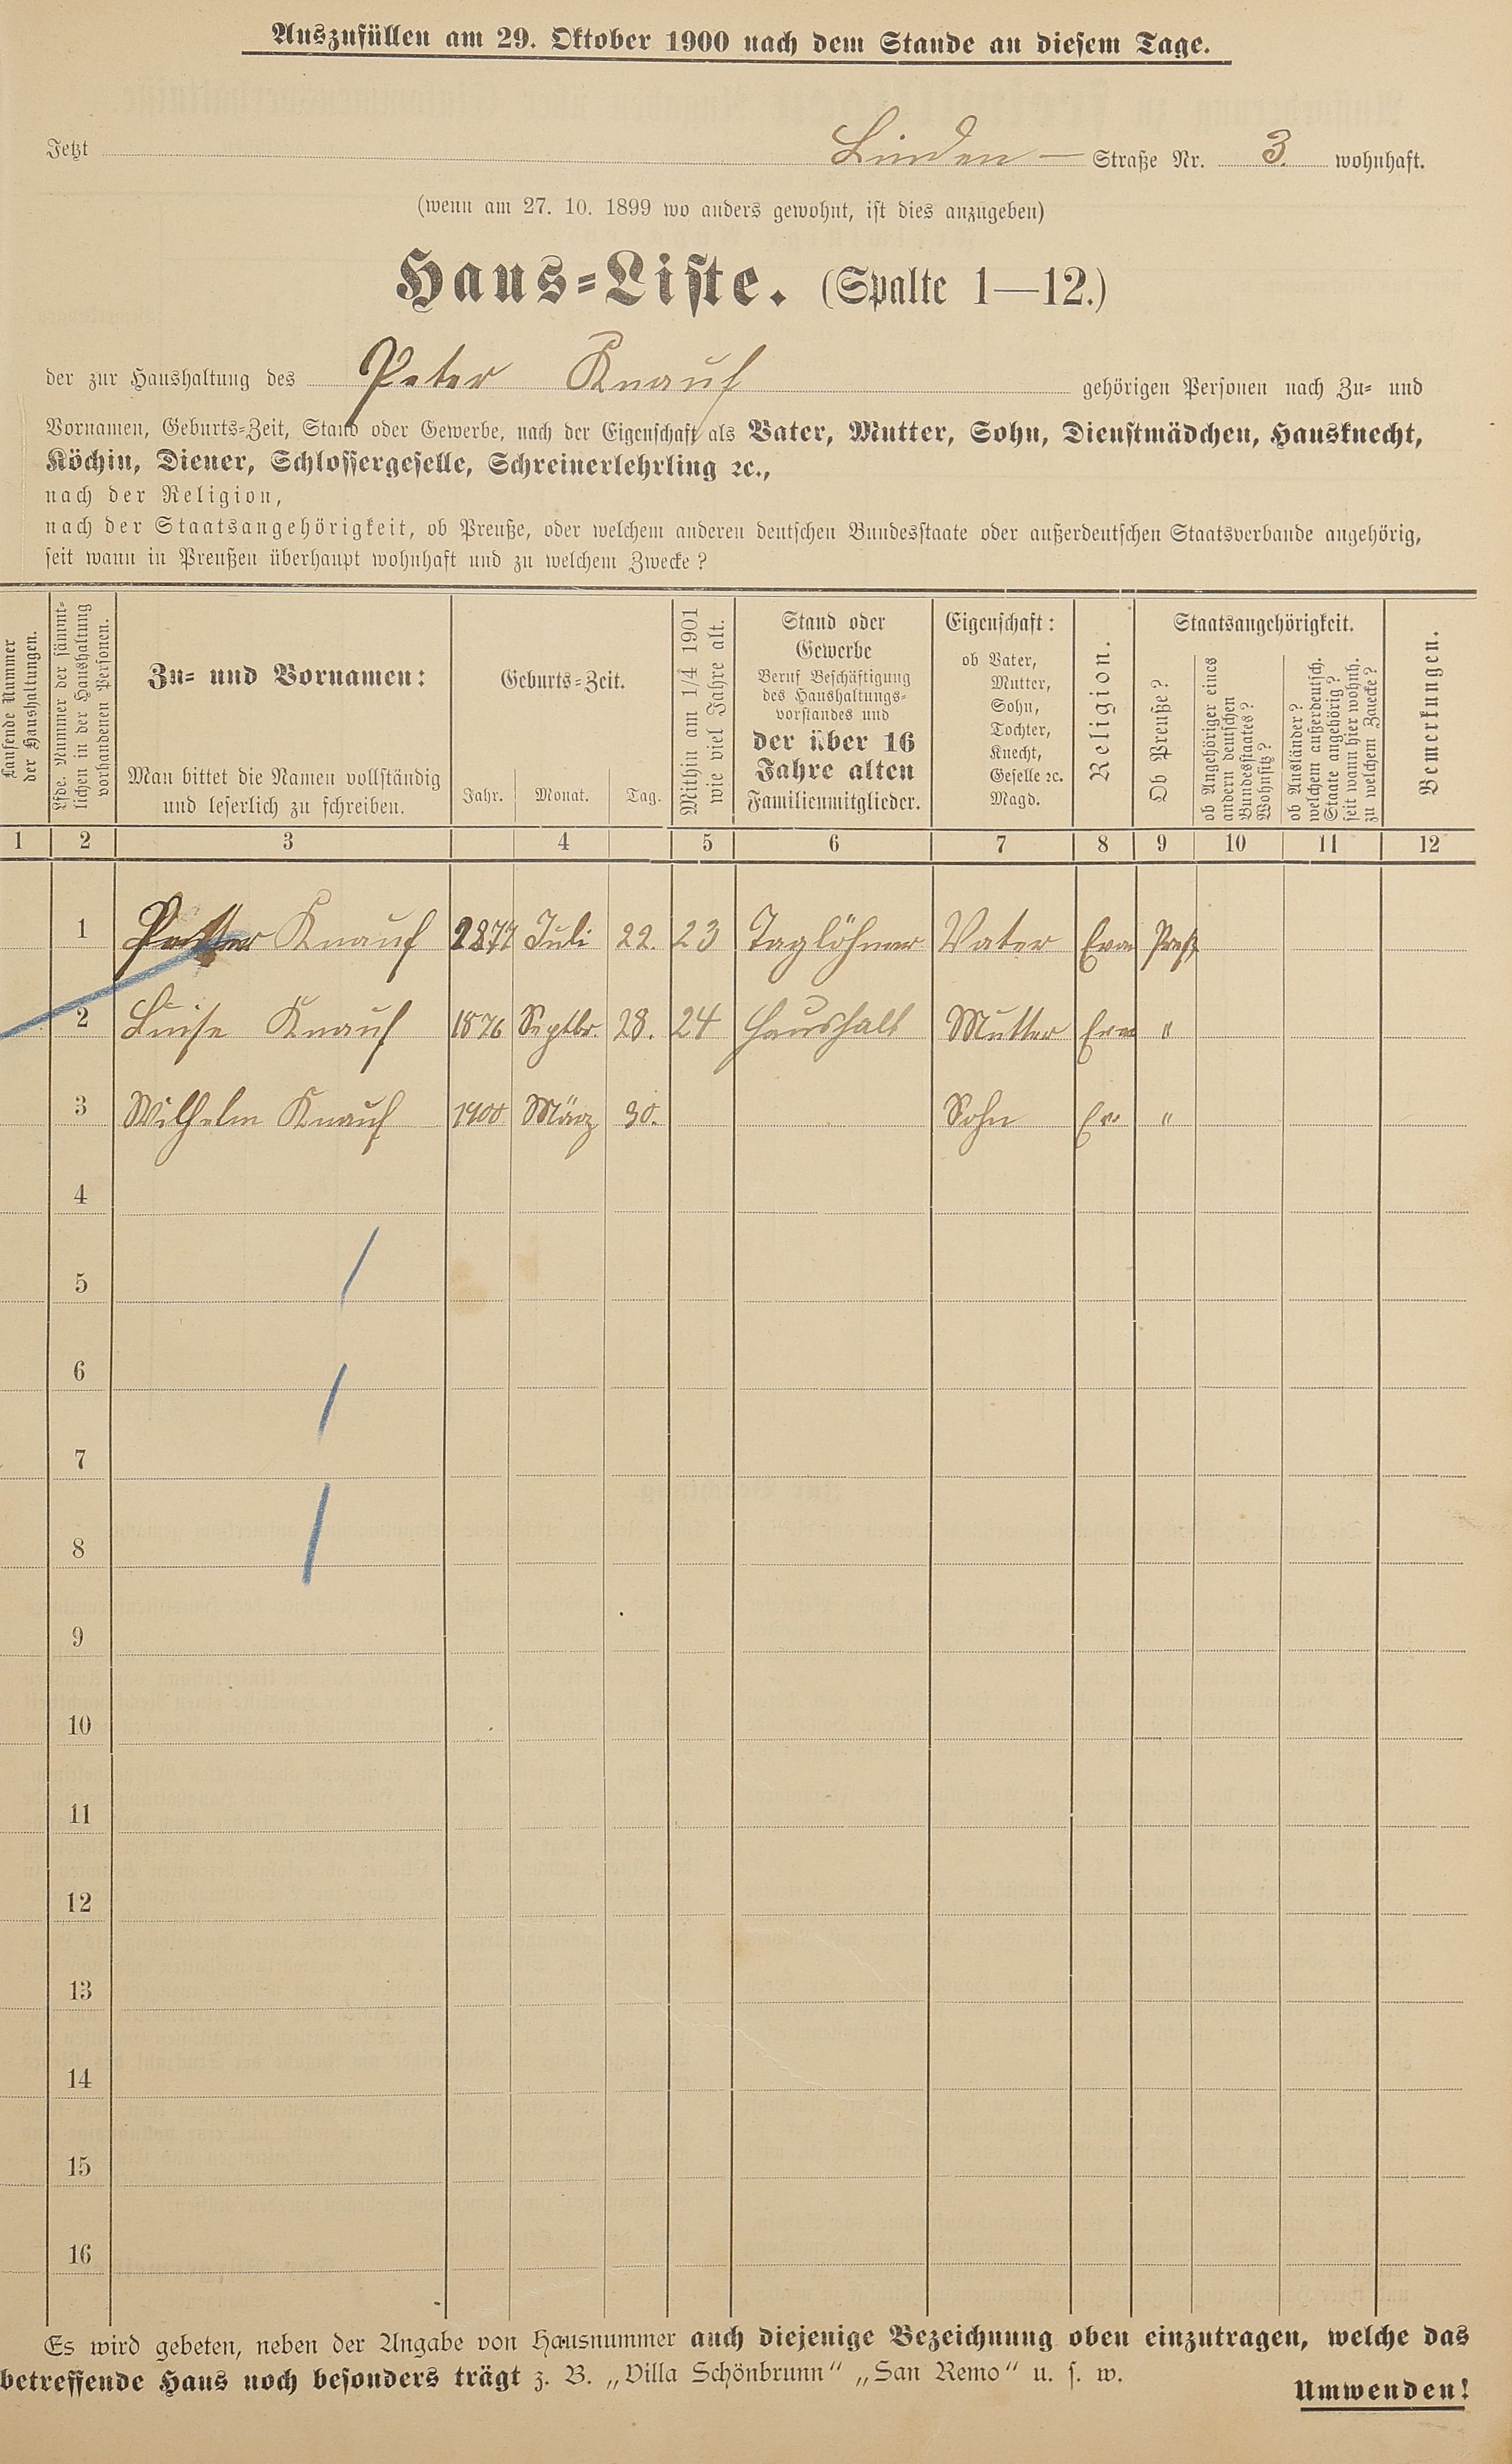 Auszufüllen am 29. Oktober 1900 nach dem Stande an diesem Tage.
Jetzt Linden – Straße Nr. 3. wohnhaft.
(wenn am 27. 10. 1899 wo anders gewohnt, ist dies anzugeben)
Haus-Liste. (Spalte 1—12.)
der zur Haushaltung des Peter Knauf gehörigen Personen nach Zu- und
Vornamen, Geburts-Zeit, Stand oder Gewerbe, nach der Eigenschaft als Vater, Mutter, Sohn, Dienstmädchen, Hausknecht,
Köchin, Diener, Schlossergeselle, Schreinerlehrling ꝛc.,
nach der Religion,
nach der Staatsangehörigkeit, ob Preuße, oder welchem anderen deutschen Bundesstaate oder außerdeutschen Staatsverbande angehörig,
seit wann in Preußen überhaupt wohnhaft und zu welchem Zwecke?
Laufende Nummer
der Haushaltungen.
Lfde. Nummer der sämmt-
lichen in der Haushaltung
vorhandenen Personen.
Zu- und Vornamen:
Man bittet die Namen vollständig
und leserlich zu schreiben.
Geburts-Zeit.
Jahr. Monat. Tag.
Mithin am 1/4 1901
wie viel Jahre alt.
Stand oder
Gewerbe
Beruf Beschäftigung
des Haushaltungs-
vorstandes und
der über 16
Jahre alten
Familienmitglieder.
Eigenschaft:
ob Vater,
Mutter,
Sohn,
Tochter,
Knecht,
Geselle ꝛc.
Magd.
Religion.
Staatsangehörigkeit.
Ob Preuße?
ob Angehöriger eines
andern deutschen
Bundesstaates?
Wohnsitz?
ob Ausländer?
welchem außerdeutsch.
Staate angehörig?
seit wann hier wohnh.
zu welchem Zwecke?
Bemerkungen.
1 2 3 4 5 6 7 8 9 10 11 12
1 Peter Knauf 1877 Juli 22. 23 Taglöhner Vater Evan Preß
2 Luise Knauf 1876 Septbr. 28. 24 Haushalt Mutter Evan "
3 Wilhelm Knauf 1900 März 30. Sohn Ev "
4
5
6
7
8
9
10
11
12
13
14
15
16
Es wird gebeten, neben der Angabe von Hausnummer auch diejenige Bezeichnung oben einzutragen, welche das
betreffende Haus noch besonders trägt z. B. „Villa Schönbrunn“ „San Remo“ u. s. w.
Umwenden!